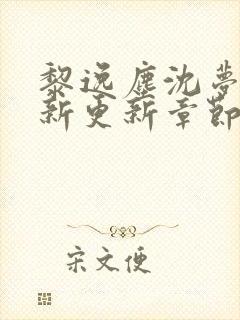 黎逸塵沈夢
新更新章節
宋文便